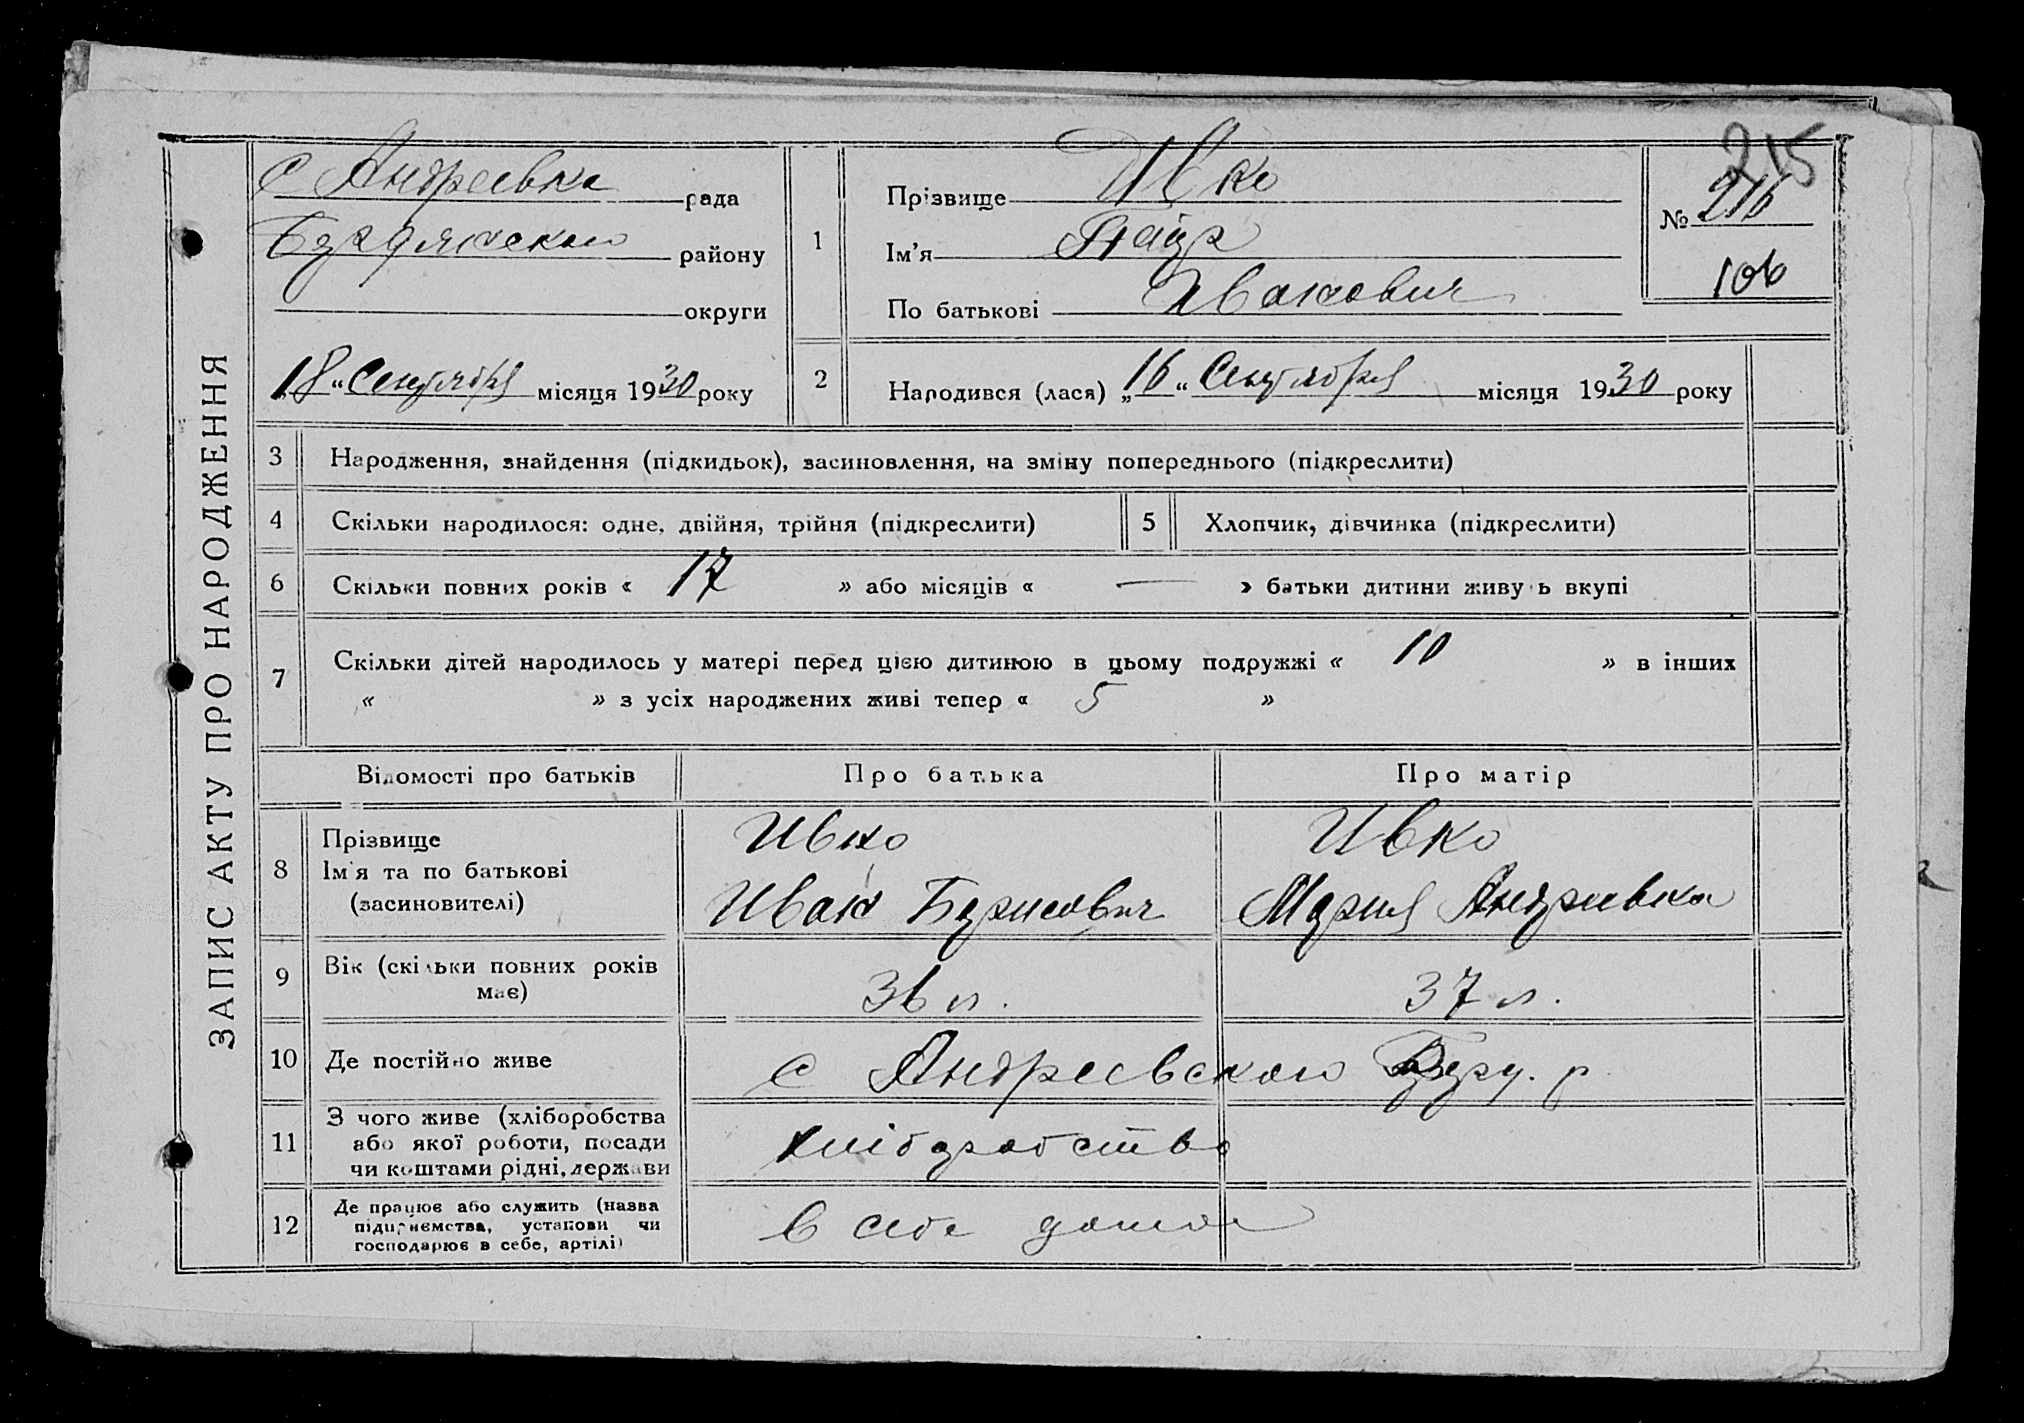 215
с Андреевка рада
району
округи
„18“ Сентября місяця 1930 року
1
Прізвище Ивко
Ім'я
По батькові Иванович
№ 216
106
2
Народився (лася) „16“ Сентября місяця 1930 року
ЗАПИС АКТУ ПРО НАРОДЖЕННЯ
3 Народження, знайдення (підкидьок), засиновлення, на зміну попереднього (підкреслити)
4 Скільки народилося: одне, двійня, трійня (підкреслити) 5 Хлопчик, дівчинка (підкреслити)
6 Скільки повних років « 17 » або місяців « — » батьки дитини живуть вкупі
7 Скільки дітей народилось у матері перед цією дитиною в цьому подружжі « 10 » в інших
« » з усіх народжених живі тепер « 5 »
Відомості про батьків Про батька Про матір
8 Прізвище
Ім'я та по батькові
(засиновителі)
Ивко
Иван Борисович
Ивко
Мария Андриевна
9 Вік (скільки повних років
має)
36 л.
37 л.
10 Де постійно живе
с Андреевского р
11 З чого живе (хліборобства
або якої роботи, посади
чи коштами рідні, держави
хліборобство
12 Де працює або служить (назва
підприємства, установи чи
господарює в себе, артілі)
в себе дома